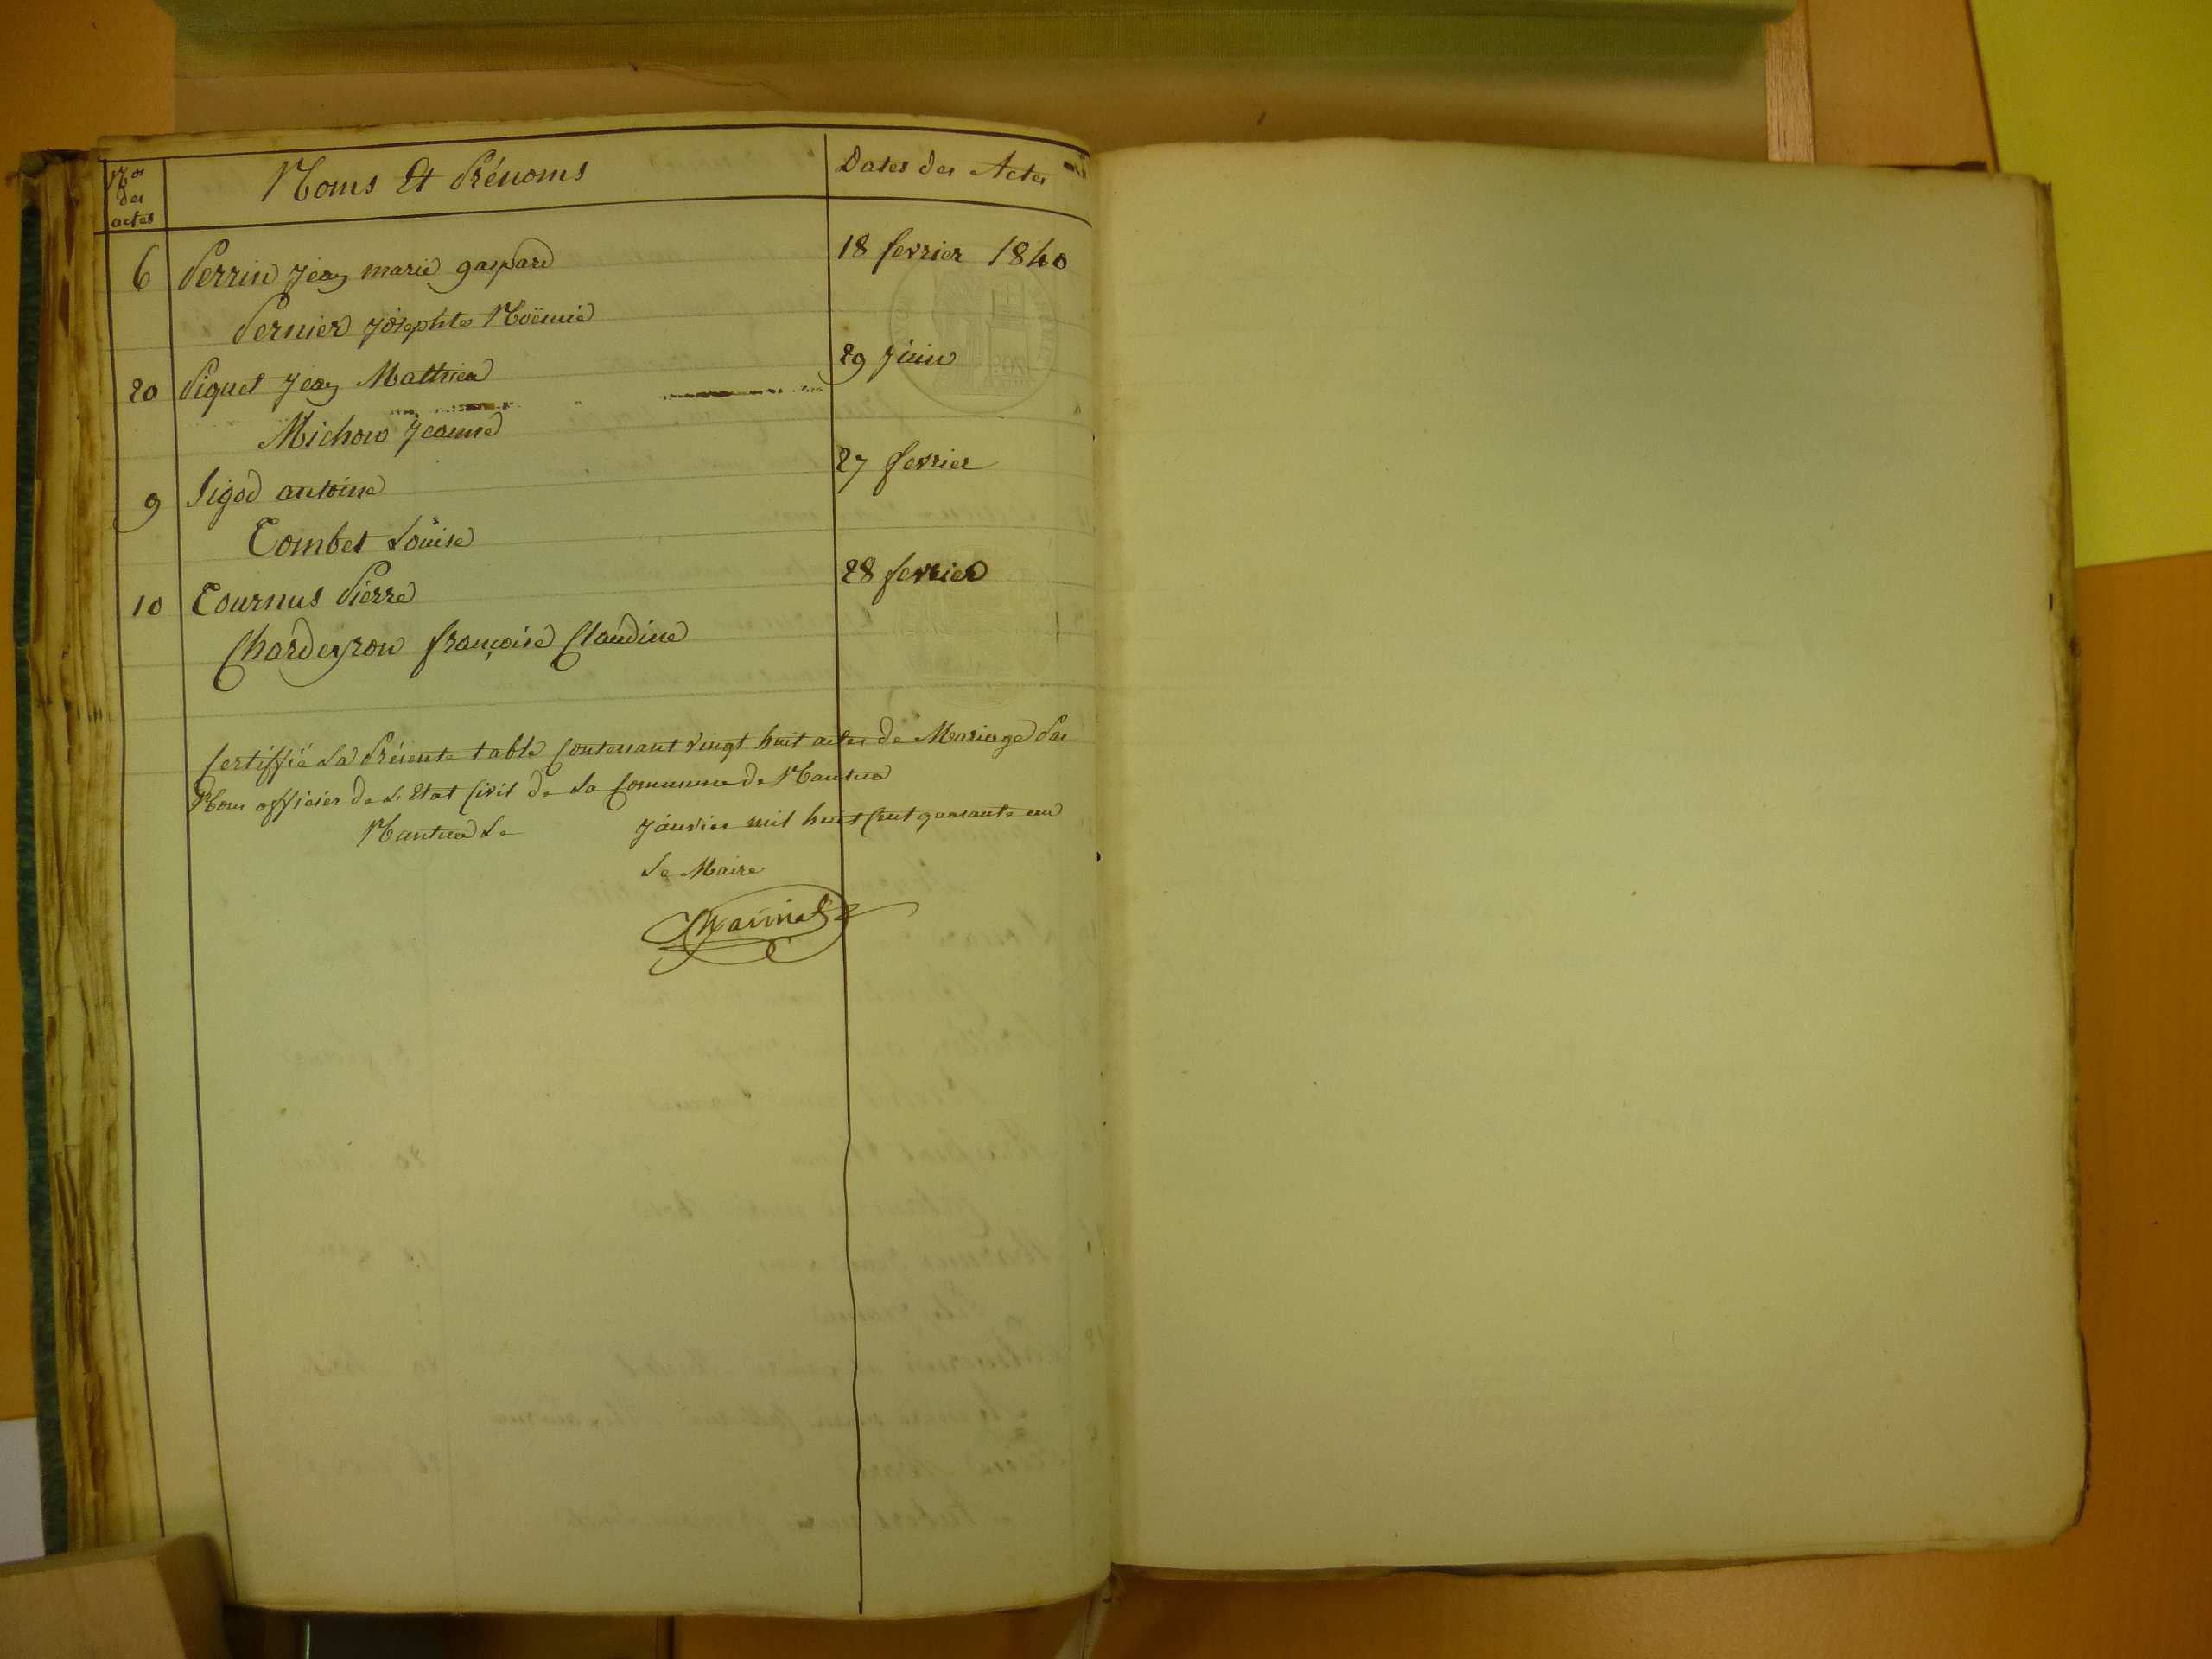 Nos des actes
Noms Et Prénoms
Dates des Actes
6 Perrin jean marie gaspard 18 fevrier 1840
Pernier josephte Noëmie
20 Piquet jean Mathieu 29 juin
Michow jeanne
9 Sigod antoine 27 fevrier
Combet Louise
10 Tournus Pierre 28 fevrier
Chardeyron françoise Claudine
Certiffié La Présente table Contenant vingt huit actes de Mariage Par
Nous officier de L'Etat Civil de La Commune de Nantua
Nantua Le janvier mil huit Cent quarante un
Le Maire